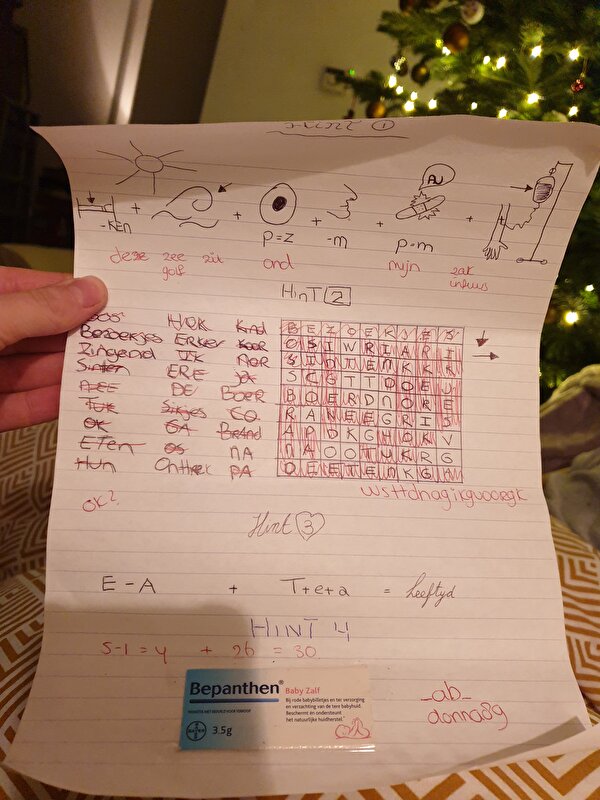 Hint ①
AU
-KEN + + + + +
p=z -m p-m
deze zee zit ond mijn zak
golf infuus
HinT 2
HOK Kind
Bezoekjes Erker KOOR
Zingend IJK NOR
Sinten ERE ja
NEE DE BOER
TUK Sikjes EO
OK GA Brand
ETen OS NA
Hun Onttrek PA
B E Z O E K J E S
O S I W R I A R I
S I N T E N K K R
S C G T T O O E J
B O E R D N O R E
R A N E E G R I S
A P D K G H O K V
N A O O T U K R G
D E E T E N K G A
wsttdnagikgvoorgk
OK?
Hint 3
E-A + T+e+a = Leeftyd
HINT 4
5-1=4 + 26 = 30
Bepanthen® Baby Zalf
Bij rode babybilletjes en ter verzorging
en verzachting van de tere babyhuid.
Beschermt én ondersteunt
het natuurlijke huidherstel.
BAYER 3.5g
_ab_
donna89